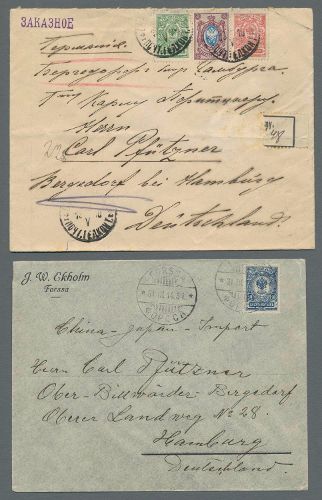 ЗАКАЗНОЕ
Германія
Бергедорф б. Гамбурга
Карлу
Herrn
Carl Pfützner
Bergedorf bei Hamburg
Deutschland.
J. W. Ekholm
Forssa
FORSSA
China-Japan-Import
Herrn Carl Pfützner
Ober-Billwärder-Bergedorf
Oberer Landweg No 28.
Hamburg
Deutschland.